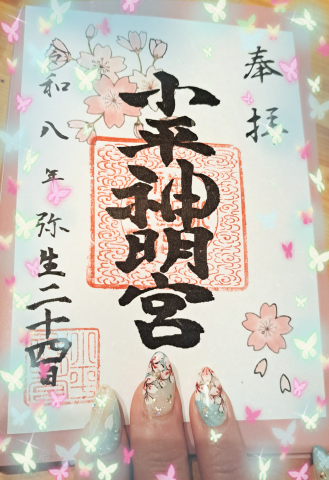 奉拝
小平神明宮
令和八年弥生二十四日